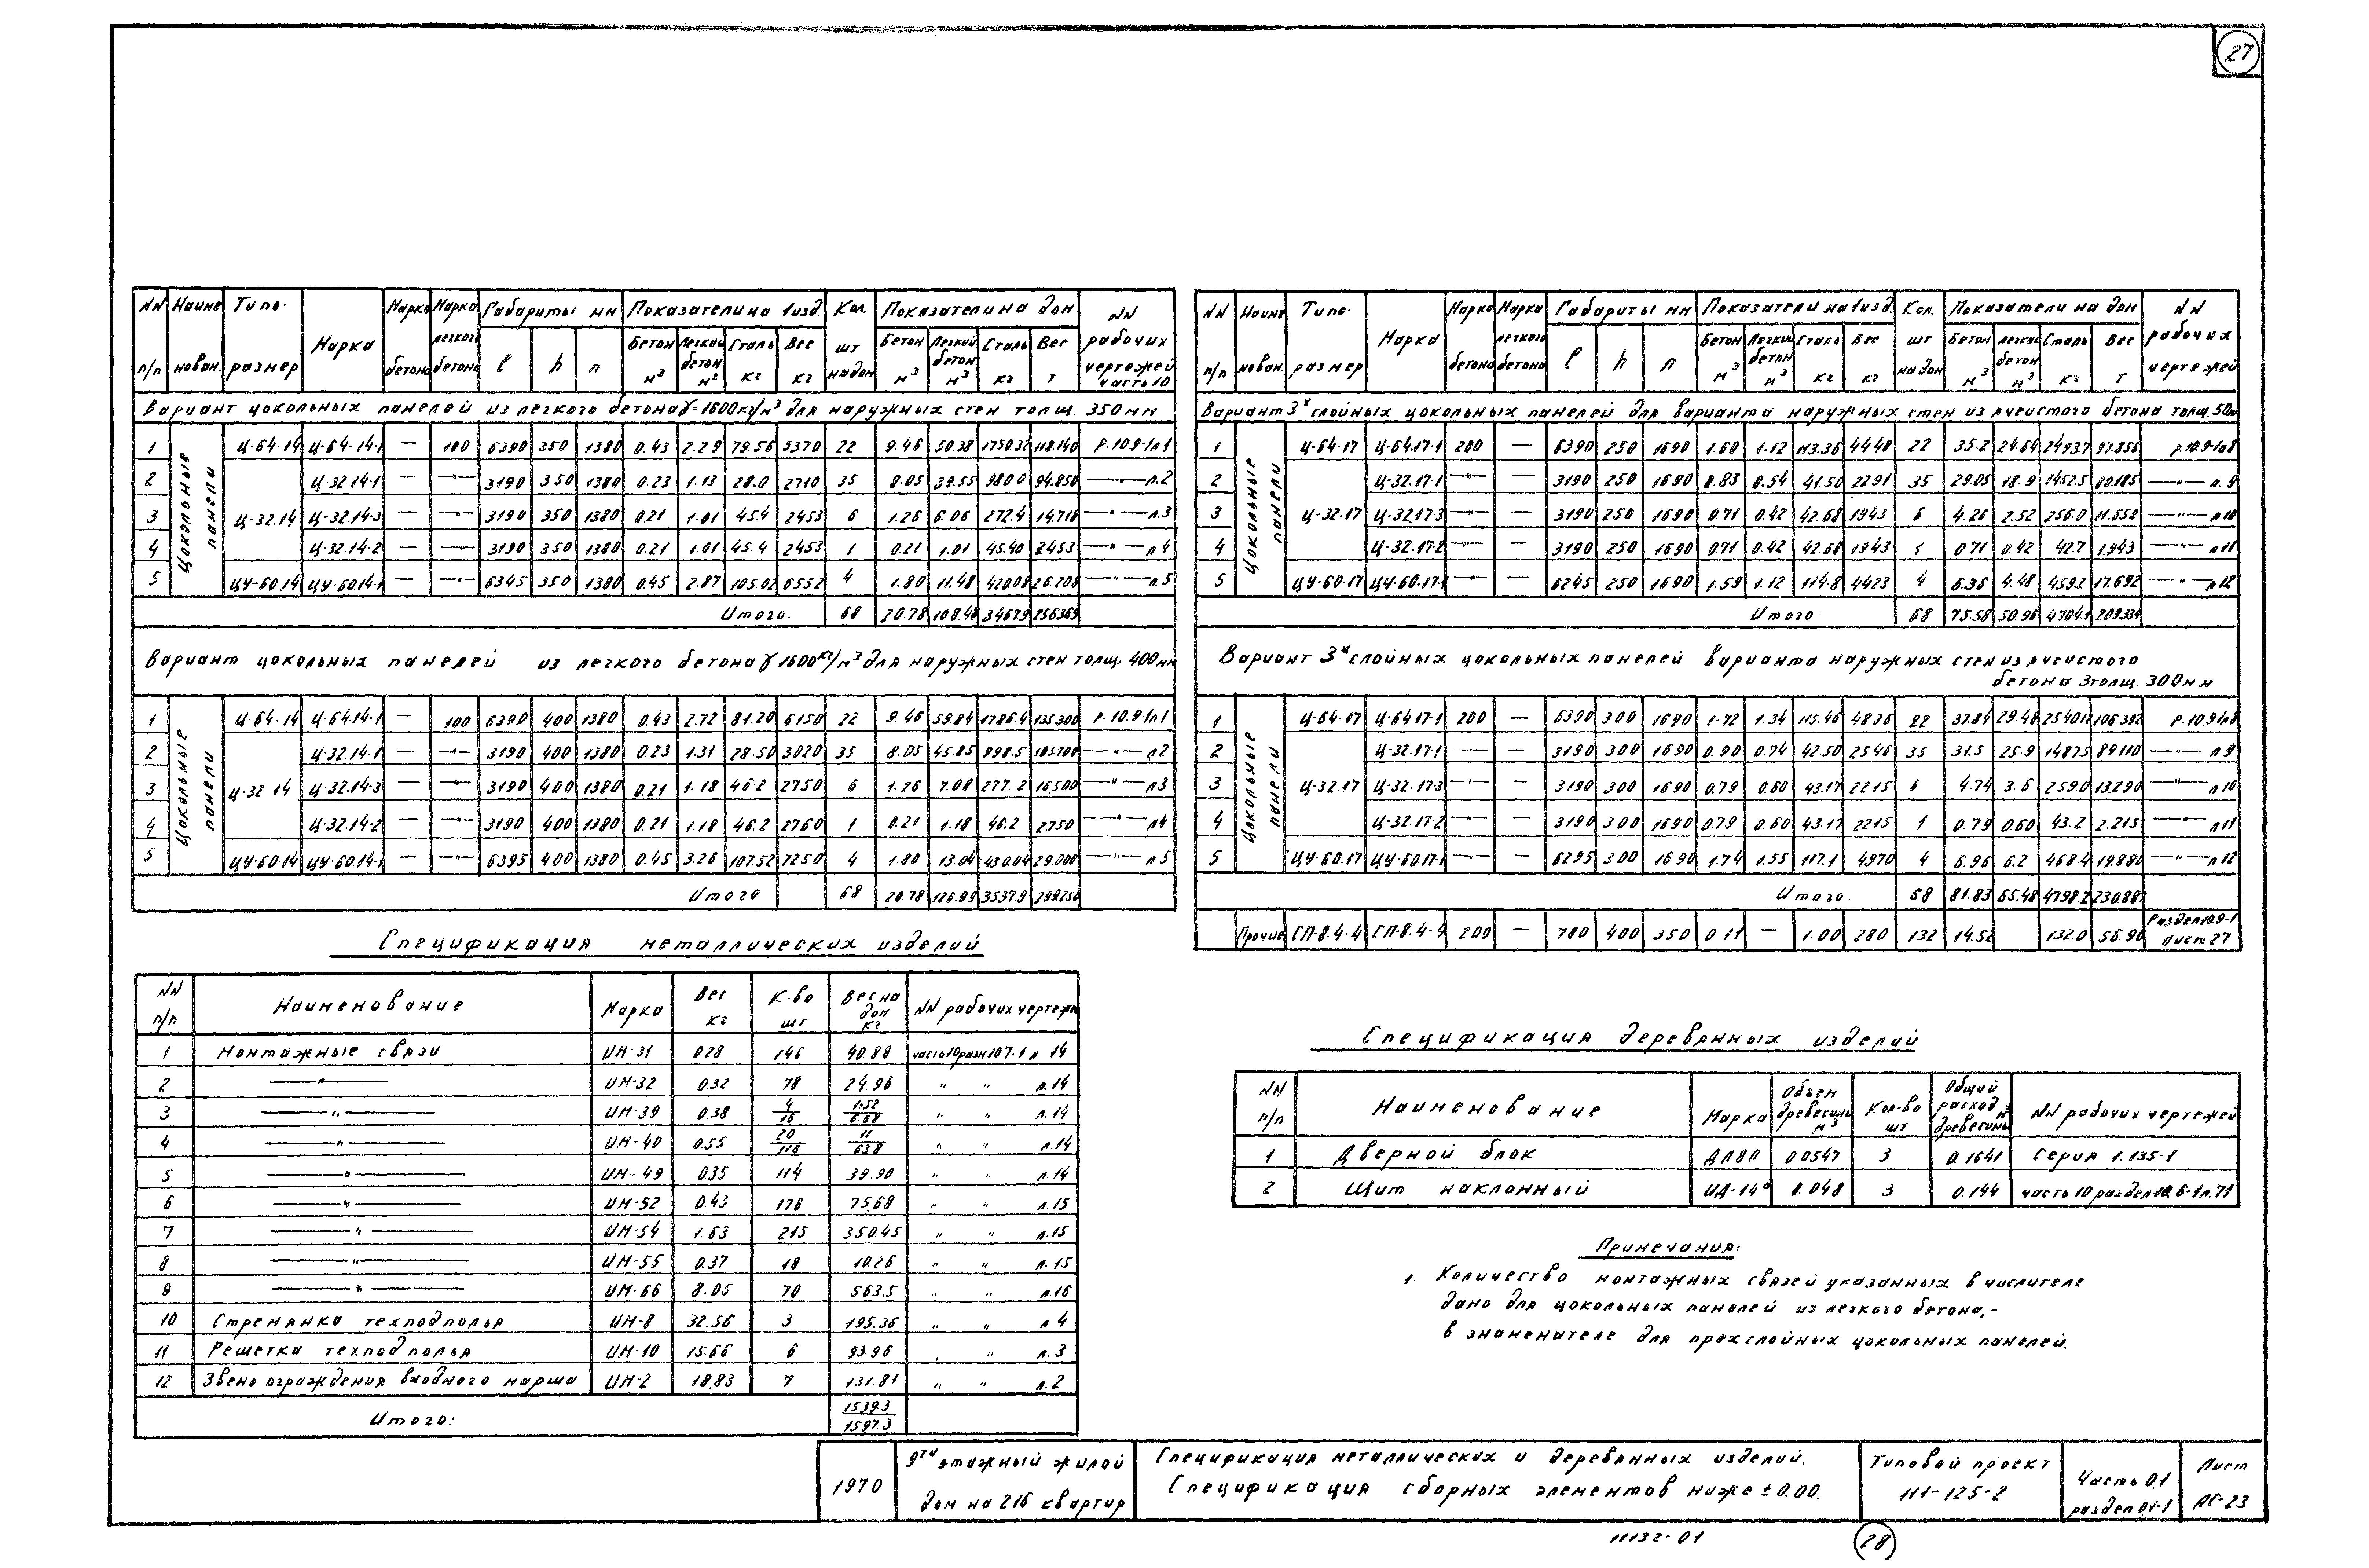 27
NN п/п Наименован. Типоразмер Марка Марка бетона Марка легкого бетона Габариты мм Показатели на 1изд. Кол. шт на дом Показатели на дом NN рабочих чертежей часть 10
l h п Бетон м³ Легкий бетон м³ Сталь кг Вес кг Бетон м³ Легкий бетон м³ Сталь кг Вес т
Вариант цокольных панелей из легкого бетона γ=1600кг/м³ для наружных стен толщ. 350мм
Цокольные панели
1 Ц-64.14 Ц-64.14-1 — 100 6390 350 1380 0.43 2.29 79.56 5370 22 9.46 50.38 1750.32 118.140 Р.10.9-1л1
2 Ц-32.14-1 — —"— 3190 350 1380 0.23 1.13 28.0 2710 35 8.05 39.55 980.0 94.850 —"— л.2
3 Ц-32.14 Ц-32.14-3 — —"— 3190 350 1380 0.21 1.01 45.4 2453 6 1.26 6.06 272.4 14.718 —"— л.3
4 Ц-32.14-2 — —"— 3190 350 1380 0.21 1.01 45.4 2453 1 0.21 1.01 45.40 2453 —"— л4
5 ЦУ-60.14 ЦУ-60.14-1 — —"— 6345 350 1380 0.45 2.87 105.02 6552 4 1.80 11.48 420.08 26.208 —"— л.5
Итого. 68 20.78 108.48 3467.9 256369
Вариант цокольных панелей из легкого бетона γ 1600кг/м³ для наружных стен толщ. 400мм
Цокольные панели
1 Ц-64-14 Ц-64.14-1 — 100 6390 400 1380 0.43 2.72 81.20 6150 22 9.46 59.84 1786.4 135300 Р.10.9-1л1
2 Ц-32.14-1 — —"— 3190 400 1380 0.23 1.31 28.50 3020 35 8.05 45.85 998.5 105700 —"— л2
3 Ц-32 14 Ц-32.14-3 — —"— 3190 400 1380 0.21 1.18 46.2 2750 6 1.26 7.08 277.2 16500 —"— л3
4 Ц-32.14-2 — —"— 3190 400 1380 0.21 1.18 46.2 2760 1 0.21 1.18 46.2 2750 —"— л4
5 ЦУ-60.14 ЦУ-60.14-1 — —"— 6395 400 1380 0.45 3.26 107.52 7250 4 1.80 13.04 430.04 29.000 —"— л5
Итого 68 20.78 126.99 3537.9 299.250
Спецификация металлических изделий
NN п/п Наименование Марка Вес кг К-во шт Вес на дом кг NN рабочих чертеже
1 Монтажные связи ИМ-31 028 146 40.88 часть10 разд 107-1 л 14
2 —"— ИМ-32 0.32 78 24.96 " " л.14
3 —"— ИМ-39 0.38 4/16 1.52/6.68 " " л.14
4 —"— ИМ-40 0.55 20/116 11/63.8 " " л.14
5 —"— ИМ-49 035 114 39.90 " " л.14
6 —"— ИМ-52 0.43 176 75.68 " " л.15
7 —"— ИМ-54 1.63 215 350.45 " " л.15
8 —"— ИМ-55 0.37 18 10.26 " " л.15
9 —"— ИМ-66 8.05 70 563.5 " " л.16
10 Стремянка техподполья ИМ-8 32.56 3 195.36 " " л 4
11 Решетка техподполья ИМ-10 15.66 6 93.96 " " л.3
12 Звено ограждения входного марша ИМ-2 18.83 7 131.81 " " л.2
Итого: 1539.3/1597.3
NN п/п Наименован. Типоразмер Марка Марка бетона Марка легкого бетона Габариты мм Показатели на 1изд. Кол. шт на дом Показатели на дом NN рабочих чертежей
l h п Бетон м³ Легкий бетон м³ Сталь кг Вес кг Бетон м³ Легкий бетон м³ Сталь кг Вес т
Вариант 3х слойных цокольных панелей для варианта наружных стен из ячеистого бетона толщ.
Цокольные панели
1 Ц-64-17 Ц-64.17-1 200 — 6390 250 1690 1.60 1.12 113.36 4448 22 35.2 24.64 2493.7 97.856 р.10.9-1л8
2 Ц-32.17-1 —"— — 3190 250 1690 0.83 0.54 41.50 2291 35 29.05 18.9 1452.5 80.185 —"— л.9
3 Ц-32.17 Ц-32.17-3 —"— 3190 250 1690 0.71 0.42 42.68 1943 6 4.26 2.52 256.0 11.658 —"— л10
4 Ц-32.17-2 —"— — 3190 250 1690 0.71 0.42 42.68 1943 1 071 0.42 42.7 1.943 —"— л11
5 ЦУ-60.17 ЦУ-60.17-1 —"— — 6245 250 1690 1.59 1.12 114.8 4423 4 6.36 4.48 459.2 17.692 —"— л12
Итого. 68 75.58 50.96 4704.1 209.334
Вариант 3х слойных цокольных панелей варианта наружных стен из ячеистого
бетона толщ. 300мм
Цокольные панели
1 Ц-64-17 Ц-64.17-1 200 — 6390 300 1690 1.72 1.34 115.46 4836 22 37.84 29.48 2540.12 106.392 Р.10.9-1л8
2 Ц-32.17-1 —"— — 3190 300 1690 0.90 0.74 42.50 2546 35 31.5 25.9 1487.5 89.110 —"— л9
3 Ц-32.17 Ц-32.17-3 —"— 3190 300 1690 0.79 0.60 43.17 2215 6 4.74 3.6 259.0 13.290 —"— л10
4 Ц-32.17-2 —"— — 3190 300 1690 0.79 0.60 43.17 2215 1 0.79 0.60 43.2 2.215 —"— л11
5 ЦУ-60.17 ЦУ-60.17-1 —"— — 6295 300 1690 1.74 1.55 117.1 4970 4 6.96 6.2 468.4 19.880 —"— л12
Итого. 68 81.83 65.48 4798.2 230.887
Прочие СП-8.4-4 СП-8.4-4 200 — 780 400 350 0.11 — 1.00 280 132 14.52 132.0 56.96 Раздел10.9-1 Лист 27
Спецификация деревянных изделий
NN п/п Наименование Марка Объем древесины м³ Кол-во шт Общий расход древесины м³ NN рабочих чертежей
1 Дверной блок ДЛ8П 0.0547 3 0.1641 Серия 1.135-1
2 Щит наклонный ИД-14 0.048 3 0.144 часть 10 раздел 10.6-1л.71
Примечания:
1. Количество монтажных связей указанных в числителе
дано для цокольных панелей из легкого бетона,-
в знаменателе для трехслойных цокольных панелей.
1970
9ти этажный жилой
дом на 216 квартир
Спецификация металлических и деревянных изделий.
Спецификация сборных элементов ниже ± 0.00.
Типовой проект
111-125-2
Часть 0.1
раздел 0.1-1
Лист
АС-23
11132-01
28